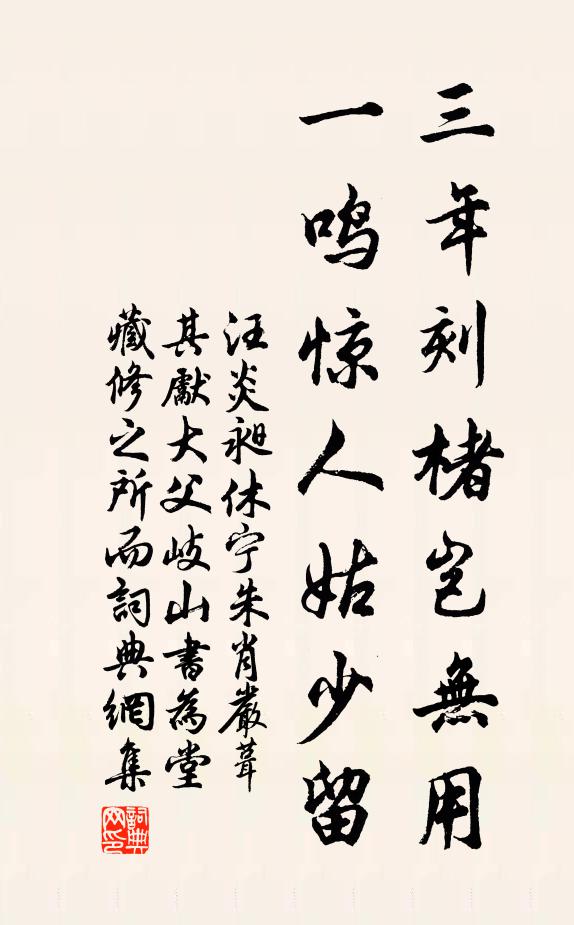 三年刻楮岂無用
一鸣惊人姑少留
汪炎昶休宁朱肖嚴葺
其獻大父岐山書為堂
藏修之所而詞典網集
詞典网印